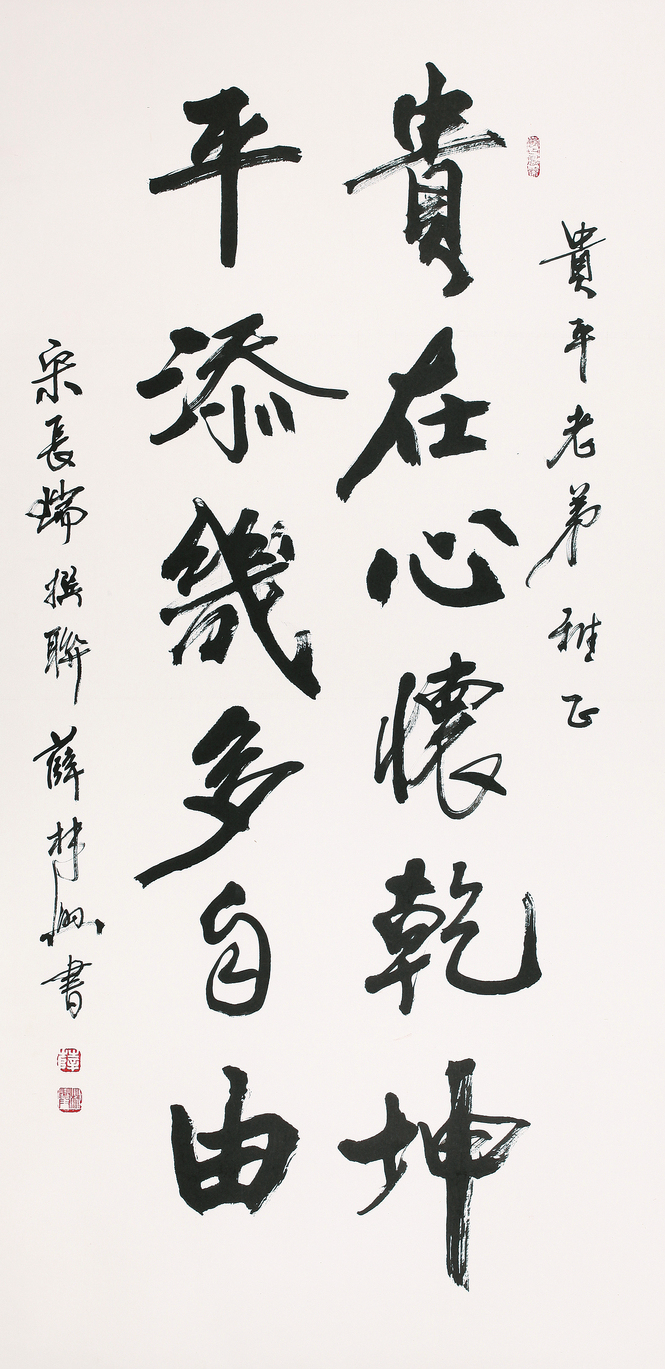 貴平老弟雅正
貴在心懷乾坤
平添幾多自由
宋長瑞撰聯 薛林興書